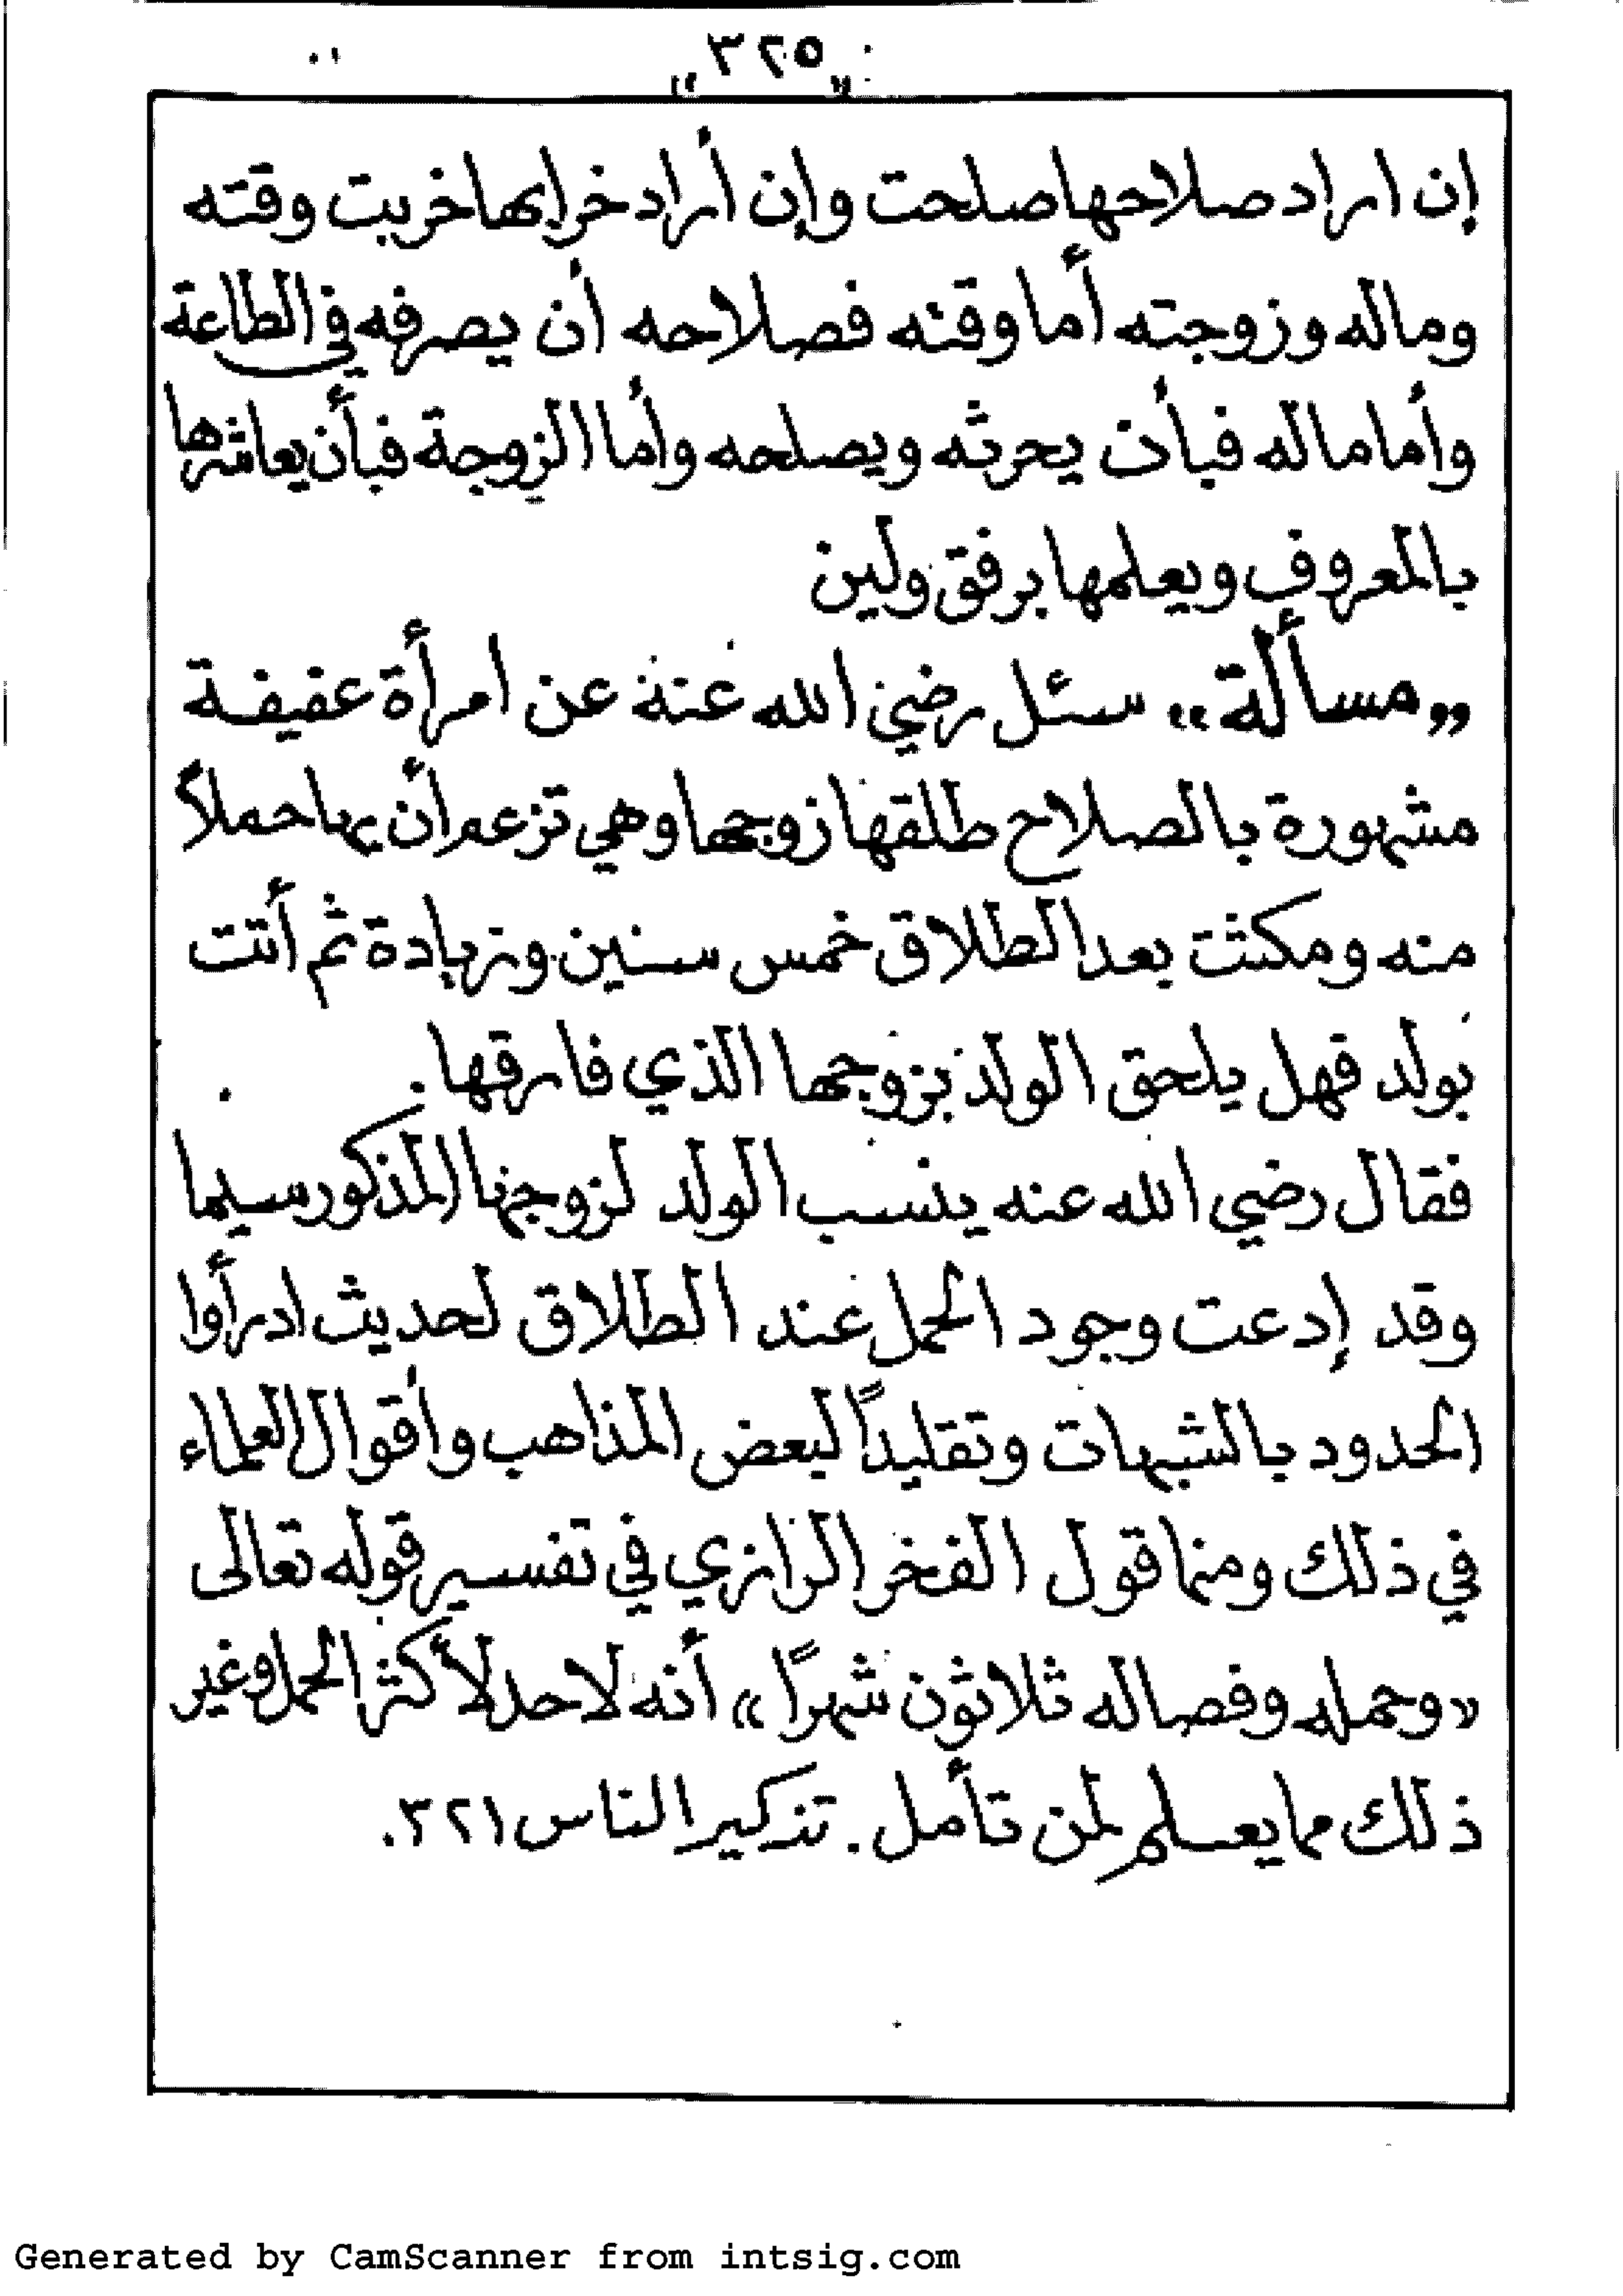 „٣٢٥„
إن اراد صلاحها صلحت وإن أراد خرابها خربت وقته
وماله وزوجته أما وقته فصلاحه أن يصرفه في الطاعة
وأما ماله فبأن يحرثه ويصلحه وأما الزوجة فبأن يعاشرها
بالمعروف ويعلمها برفق ولين
„مسألة„ سئل رضي الله عنه عن امرأة عفيفة
مشهورة بالصلاح طلقها زوجها وهي تزعم أن بها حملاً
منه ومكثت بعد الطلاق خمس سنين وزيادة ثم أتت
بولد فهل يلحق الولد بزوجها الذي فارقها.
فقال رضي الله عنه ينسب الولد لزوجها المذكور سيما
وقد إدعت وجود الحمل عند الطلاق لحديث ادرأوا
الحدود بالشبهات وتقليداً لبعض المذاهب وأقوال العلماء
في ذلك ومنها قول الفخر الرازي في تفسير قوله تعالى
«وحمله وفصاله ثلاثون شهرًا» أنه لا حد لأكثر الحمل وغير
ذلك مما يعلم لمن تأمل. تذكير الناس ٣٢١.
Generated by CamScanner from intsig.com